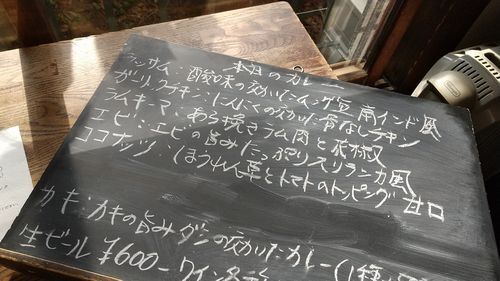 本日のカレー
ラッサム:酸味の効いたムング豆 南インド風
ガーリックチキン:にんにくの効いた骨なしチキン
ラムキーマ:あら挽きラム肉と花椒
エビ:エビの旨みたっぷりスリランカ風
ココナッツ:ほうれん草とトマトのトッピング 甘口
カキ:カキの旨み ダシの効いたカレー(1種
生ビール ¥600- ワイン各